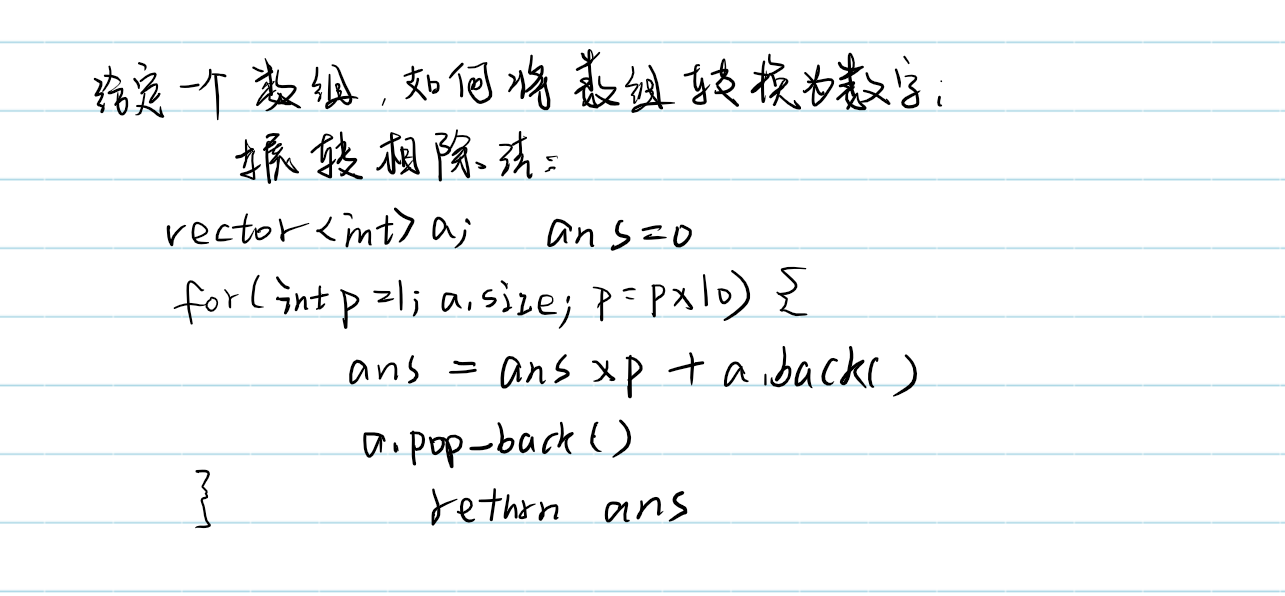 给定一个数组,如何将数组转换为数字;
辗转相除法:
vector<int> a; ans=0
for(int p=1; a.size; p=p×10) {
ans = ans ×p + a.back()
a.pop_back()
} return ans